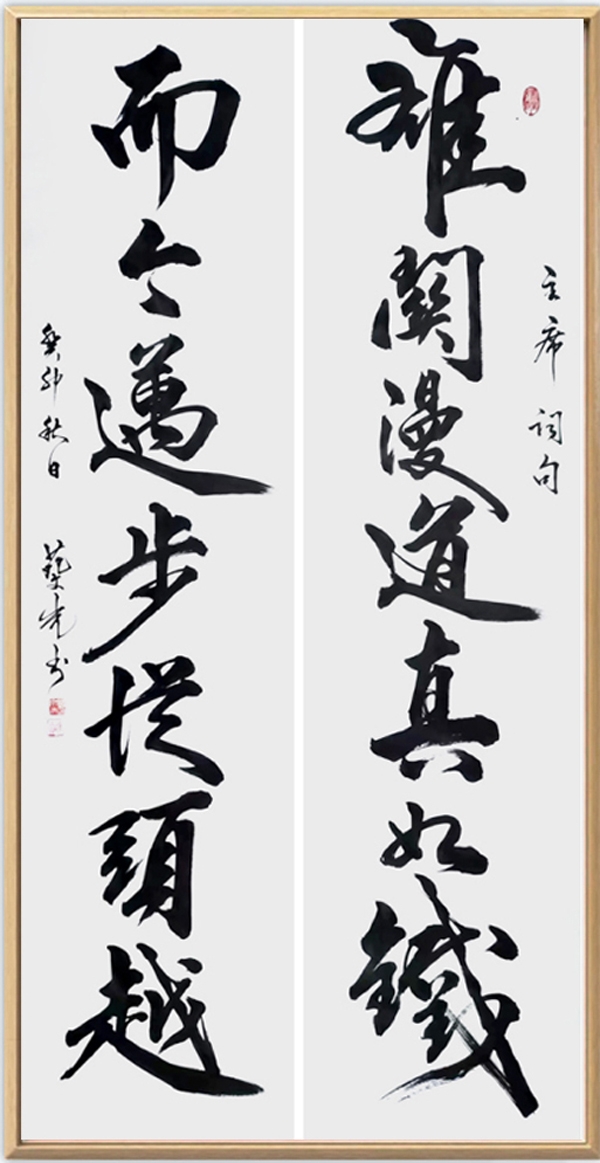 主席词句
雄關漫道真如鐵
而今邁步從頭越
癸卯秋日